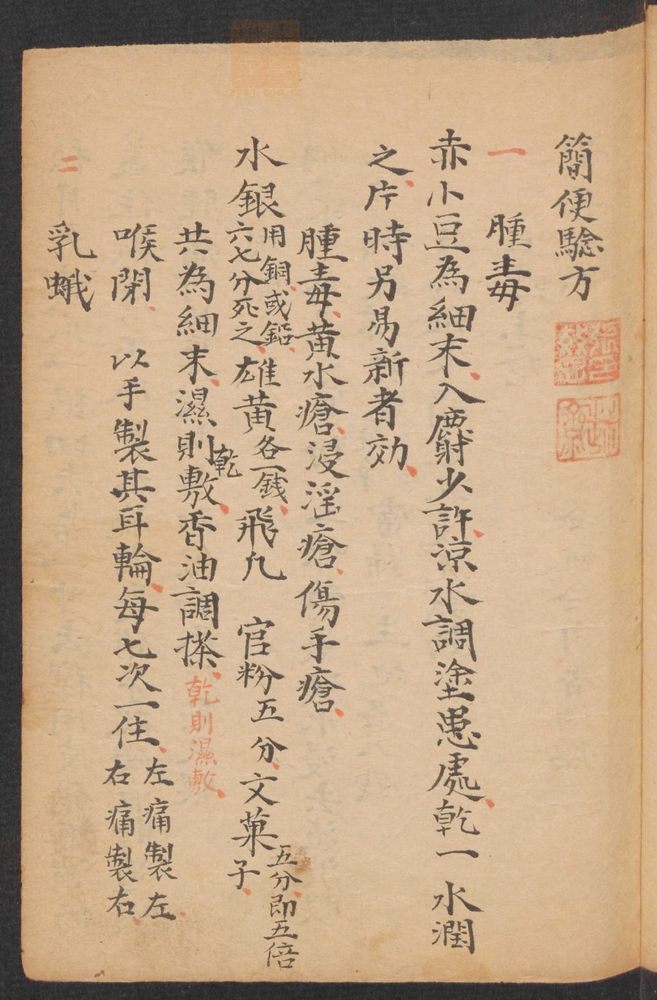 簡便騐方
一
腫毒
赤小豆為細末、入麝少許、涼水調塗患處、乾一水潤
之、片時另易新者効、
腫毒、黃水瘡、浸淫瘡、傷手瘡、
水銀用銅或鉛六七分死之、雄黃各一錢、飛凡 官粉五分、文菓子五分、即五倍
共為細末、濕則乾敷、香油調搽、乾則濕敷、
喉閉、以手製其耳輪、每七次一住、左痛製左右痛製右、
二
乳蛾